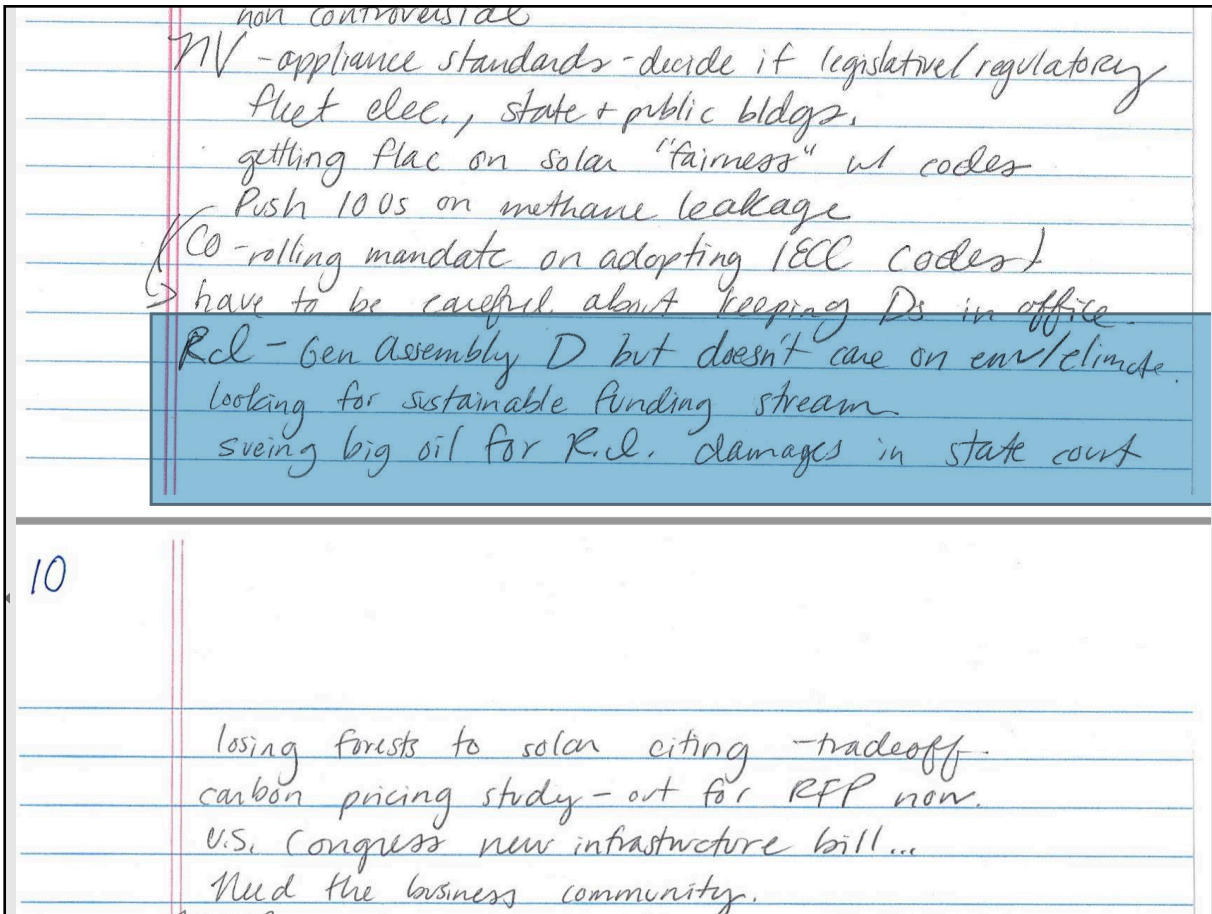 non controversial
NV - appliance standards - decide if legislative/regulatory
fleet elec., state + public bldgs.
getting flac on solar "fairness" w/ codes
Push 100s on methane leakage
(CO - rolling mandate on adopting IECC codes)
→ have to be careful about keeping Ds in office.
R.I. - Gen Assembly D but doesn't care on env/climate.
looking for sustainable funding stream
sueing big oil for R.I. damages in state court
10
losing forests to solar citing - tradeoff.
carbon pricing study - out for RFP now.
U.S. Congress new infrastructure bill...
Need the business community.